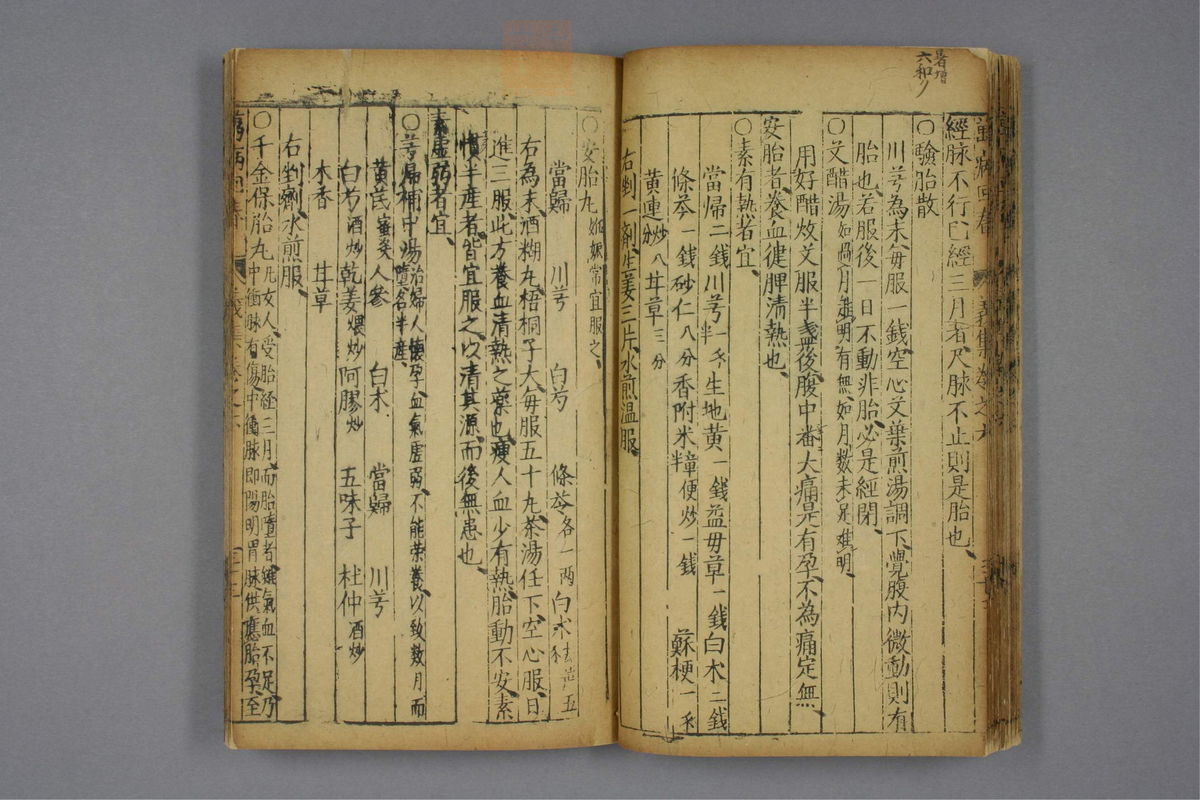 暑增
六和
萬病回春 義集卷之六
經脉不行巳經三月者尺脉不止則是胎也
○驗胎散
川芎為末每服一錢空心艾葉煎湯調下覺腹内微動則有
胎也若服後一日不動非胎必是經閉
○艾醋湯 如過月難明有無如月数未足難明
用好醋炆艾服半盞後腹中番大痛是有孕不為痛定無
安胎者養血健脾清熱也
○素有熱者宜
當歸二錢 川芎一錢半 生地黄一錢 益母草一錢 白朮二錢
條芩一錢 砂仁八分 香附米童便炒一錢半 蘇梗一錢
黄連炒八分 甘草三分
右剉一劑生姜三片水煎温服
○安胎丸 姙娠常宜服之
當歸 川芎 白芍 條芩各一兩 白朮五
右為末酒糊丸梧桐子大毎服五十丸茶湯任下空心服日
進三服此方養血清熱之藥也瘦人血少有熱胎動不安素
慣半産者皆宜服之以清其源而後無患也
素虛弱者宜
○芎歸補中湯 治婦人懐孕血氣虛弱不能荣養以致数月而墮名半産
黄芪蜜炙 人參 白朮 當歸 川芎
白芍酒炒 乾姜煨炒 阿膠炒 五味子 杜仲酒炒
木香 甘草
右剉劑水煎服
○千金保胎丸 凡女人受胎經三月而胎墮者雖氣血不足乃中衝脉有傷中衝脉即陽明胃脉供應胎孕至
萬病回春